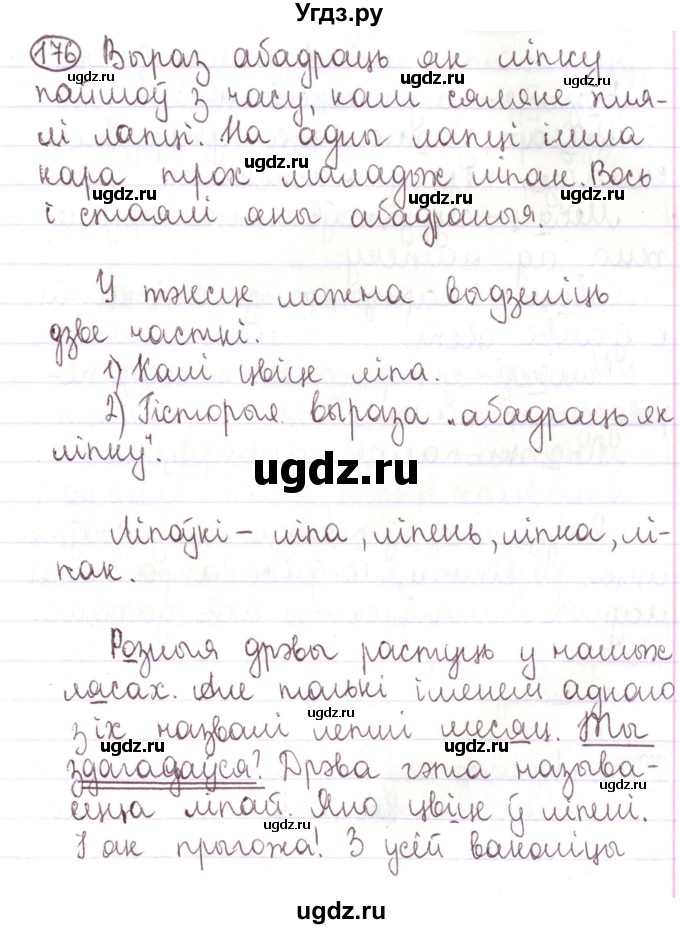 Угдз.ру
176 Выраз абадраць як ліпку
пайшоў з часу, калі сяляне пля-
лі лапці. На адны лапці ішла
кара трох маладых ліпак. Вось
і стаялі яны абадраныя.
У тэксце можна выдзеліць
дзве часткі.
1) Калі цвіце ліпа.
2) Гісторыя выраза „абадраць як
ліпку".
ugdz.ru
Ліпаўкі – ліпа, ліпень, ліпка, лі-
пак.
Розныя дрэвы растуць у нашых
лясах. Але толькі іменем аднаго
з іх назвалі летні месяц. Ты
здагадаўся? Дрэва гэта называ-
ецца ліпай. Яно цвіце ў ліпені.
І як прыгожа! З усёй ваколіцы
ugdz.ru